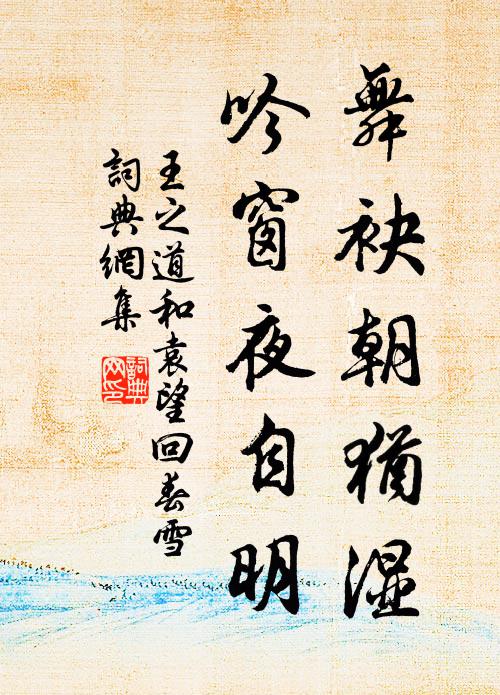 舞袂朝猶濕
吟窗夜自明
王之道和袁望回春雪
詞典網集
詞典網印